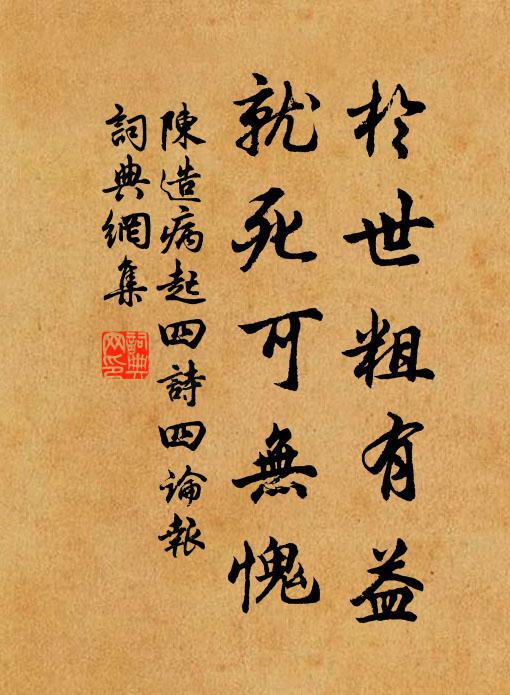 於世粗有益
就死可無愧
陳造病起四詩四論報
詞典網集
詞典網印